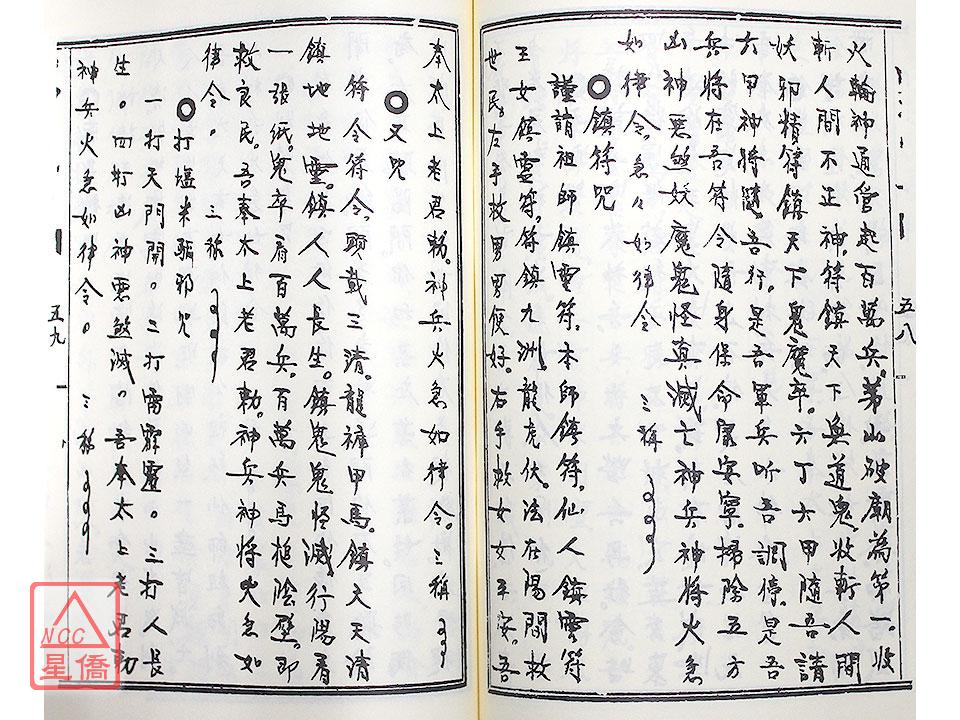 火輪神通營起百萬兵。第山破廟為第一。收
斬人間不正神。符鎮天下無道鬼。收斬人間
妖邪精。符鎮天下鬼魔卒。六丁六甲隨吾請
六甲神將隨吾行。是吾軍兵听吾調停。是吾
兵將在吾符令隨身保命宮安寧。掃除五方
凶神惡煞妖魔鬼怪真滅亡神兵神將火急
如律令。急々如律令 三稱
鎮符咒
謹請祖師鎮靈符。本師鎮符。仙人鎮靈符
玉女鎮靈符。符鎮九洲。龍虎伏。法在陽間救
世民。左手救男男便好。右手救女女平安。吾
五八
奉太上老君勅。神兵火急如律令。三稱
又咒
符令符令。頭戴三清。龍褲甲馬。鎮天天清
鎮地地靈。鎮人人長生。鎮鬼鬼怪滅。行陽看
一張紙。鬼卒看百萬兵。百萬兵馬搥陰壓。即
救良民。吾奉太上老君勅。神兵神將火急如
律令。三稱
打塩米驅邪咒
一打天門開。二打雷霹靂。三打人長
生。四打凶神惡煞滅。吾奉太上老君勅
神兵火急如律令。三稱
五九
NCC
星僑